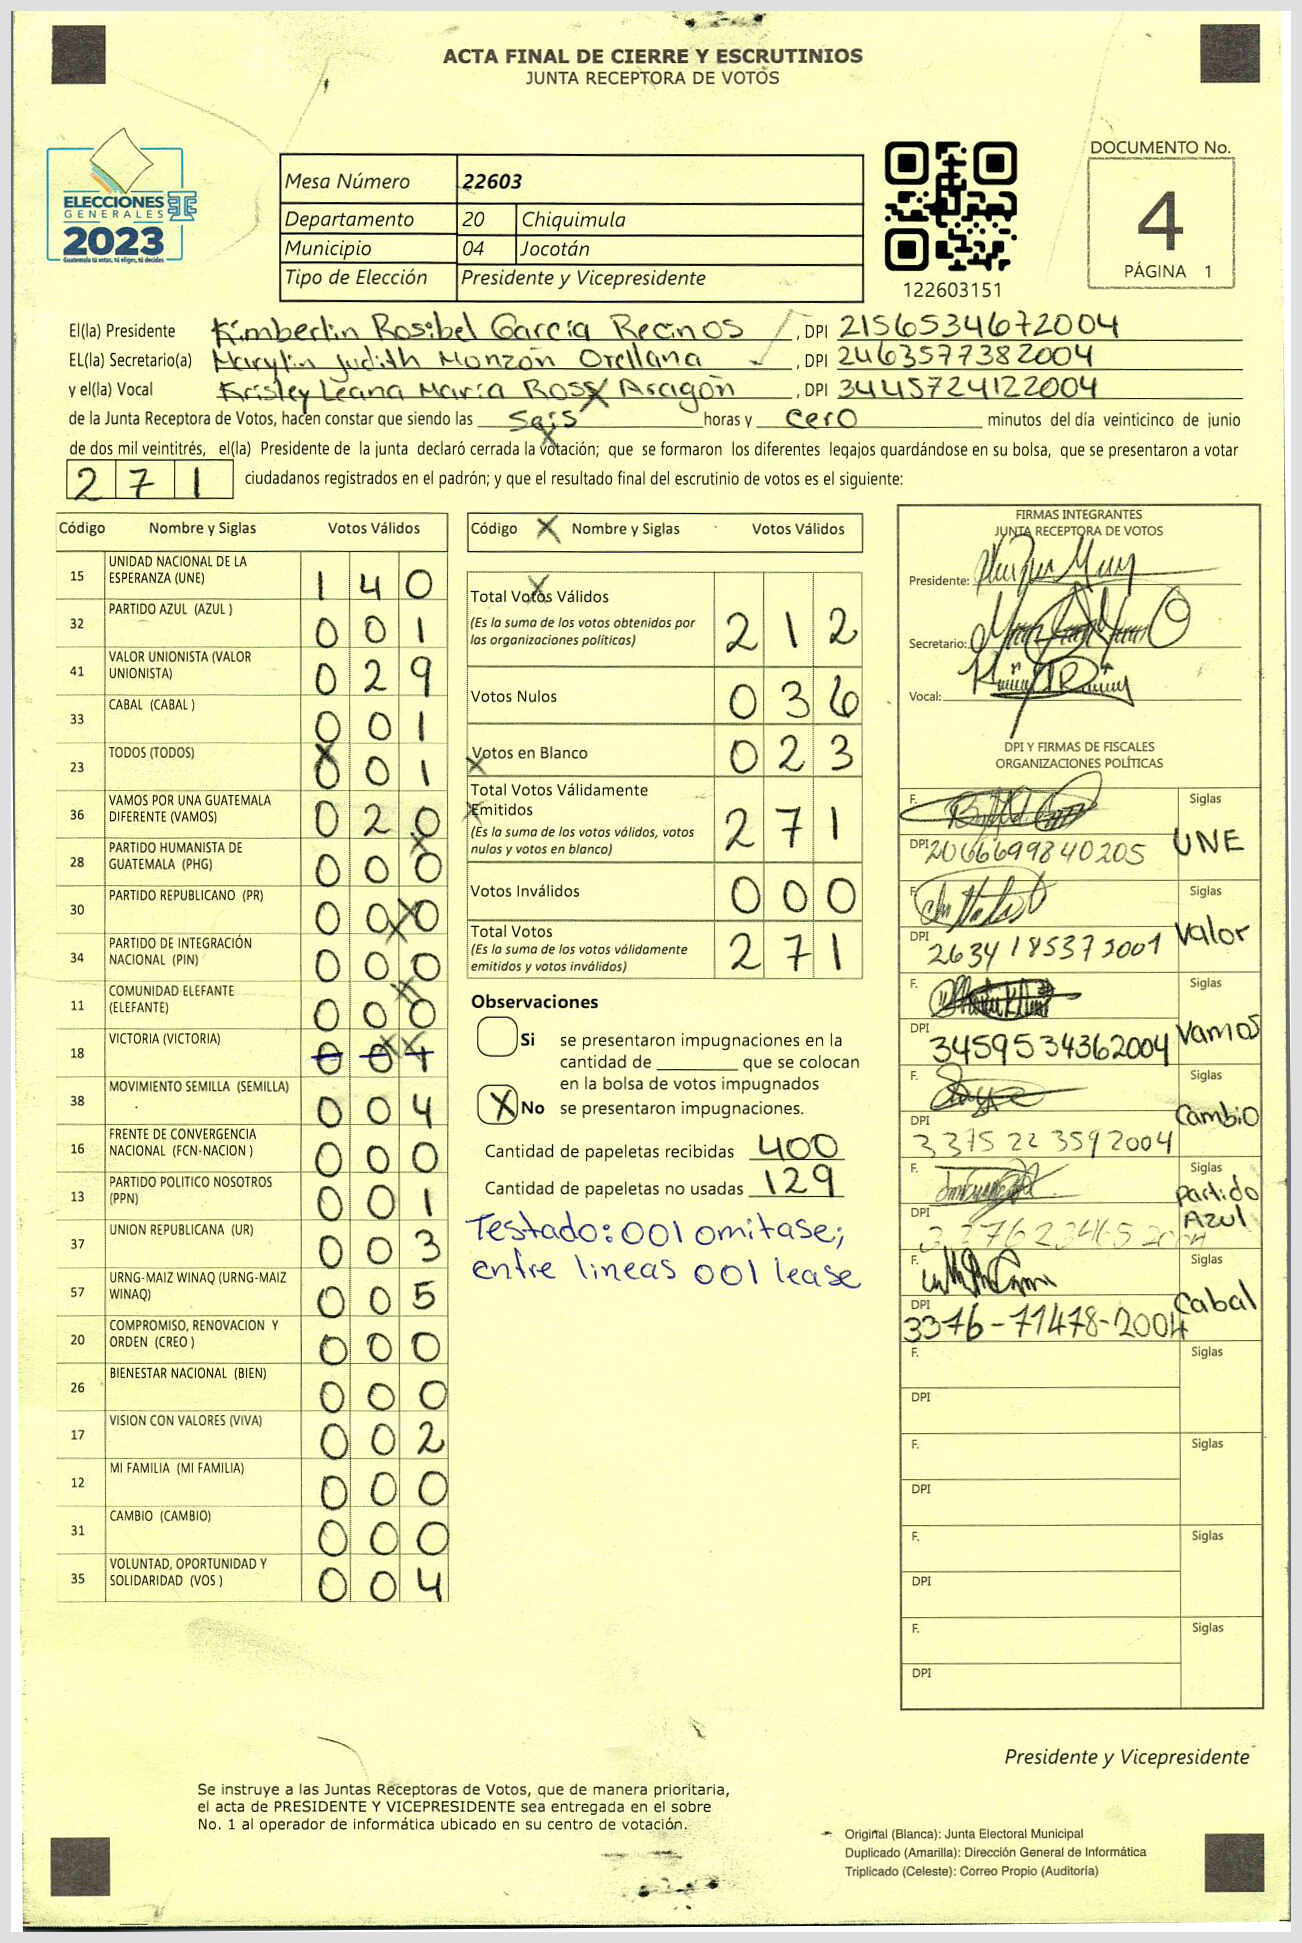 ACTA FINAL DE CIERRE Y ESCRUTINIOS
JUNTA RECEPTORA DE VOTOS
ELECCIONES
GENERALES
2023
Guatemala tú votas, tú eliges, tú decides
Mesa Número 22603
Departamento 20 Chiquimula
Municipio 04 Jocotán
Tipo de Elección Presidente y Vicepresidente
122603151
DOCUMENTO No.
4
PÁGINA 1
El(la) Presidente Kimberlin Rosibel García Recinos, DPI 2156534672004
EL(la) Secretario(a) Marylin Judith Monzón Orellana, DPI 2463577382004
y el(la) Vocal Krisley Leana María Ross Aragón, DPI 3445724122004
de la Junta Receptora de Votos, hacen constar que siendo las seis horas y cero minutos del día veinticinco de junio
de dos mil veintitrés, el(la) Presidente de la junta declaró cerrada la votación; que se formaron los diferentes legajos guardándose en su bolsa, que se presentaron a votar
271 ciudadanos registrados en el padrón; y que el resultado final del escrutinio de votos es el siguiente:
Código Nombre y Siglas Votos Válidos
15 UNIDAD NACIONAL DE LA ESPERANZA (UNE) 140
32 PARTIDO AZUL (AZUL ) 001
41 VALOR UNIONISTA (VALOR UNIONISTA) 029
33 CABAL (CABAL ) 001
23 TODOS (TODOS) 001
36 VAMOS POR UNA GUATEMALA DIFERENTE (VAMOS) 020
28 PARTIDO HUMANISTA DE GUATEMALA (PHG) 000
30 PARTIDO REPUBLICANO (PR) 000
34 PARTIDO DE INTEGRACIÓN NACIONAL (PIN) 000
11 COMUNIDAD ELEFANTE (ELEFANTE) 000
18 VICTORIA (VICTORIA) 001
38 MOVIMIENTO SEMILLA (SEMILLA) 004
16 FRENTE DE CONVERGENCIA NACIONAL (FCN-NACION ) 000
13 PARTIDO POLITICO NOSOTROS (PPN) 001
37 UNION REPUBLICANA (UR) 003
57 URNG-MAIZ WINAQ (URNG-MAIZ WINAQ) 005
20 COMPROMISO, RENOVACION Y ORDEN (CREO ) 000
26 BIENESTAR NACIONAL (BIEN) 000
17 VISION CON VALORES (VIVA) 002
12 MI FAMILIA (MI FAMILIA) 000
31 CAMBIO (CAMBIO) 000
35 VOLUNTAD, OPORTUNIDAD Y SOLIDARIDAD (VOS ) 004
Código Nombre y Siglas Votos Válidos
Total Votos Válidos 212
(Es la suma de los votos obtenidos por
las organizaciones políticas)
Votos Nulos 036
Votos en Blanco 023
Total Votos Válidamente
Emitidos 271
(Es la suma de los votos válidos, votos
nulos y votos en blanco)
Votos Inválidos 000
Total Votos 271
(Es la suma de los votos válidamente
emitidos y votos inválidos)
Observaciones
Si se presentaron impugnaciones en la
cantidad de ________ que se colocan
en la bolsa de votos impugnados
X No se presentaron impugnaciones.
Cantidad de papeletas recibidas 400
Cantidad de papeletas no usadas 129
Testado: 001 omitase;
entre lineas 001 lease
FIRMAS INTEGRANTES
JUNTA RECEPTORA DE VOTOS
Presidente:
Secretario:
Vocal:
DPI Y FIRMAS DE FISCALES
ORGANIZACIONES POLÍTICAS
F. Siglas
DPI 2066699840205 UNE
F. Siglas
DPI 2634185372001 Valor
F. Siglas
DPI 3459534362004 Vamos
F. Siglas
DPI 3375223592004 Cambio
F. Siglas
DPI Partido Azul
F. Siglas
DPI 3376-71478-2004 Cabal
F. Siglas
DPI
F. Siglas
DPI
F. Siglas
DPI
F. Siglas
DPI
Presidente y Vicepresidente
Se instruye a las Juntas Receptoras de Votos, que de manera prioritaria,
el acta de PRESIDENTE Y VICEPRESIDENTE sea entregada en el sobre
No. 1 al operador de informática ubicado en su centro de votación.
Original (Blanca): Junta Electoral Municipal
Duplicado (Amarilla): Dirección General de Informática
Triplicado (Celeste): Correo Propio (Auditoría)